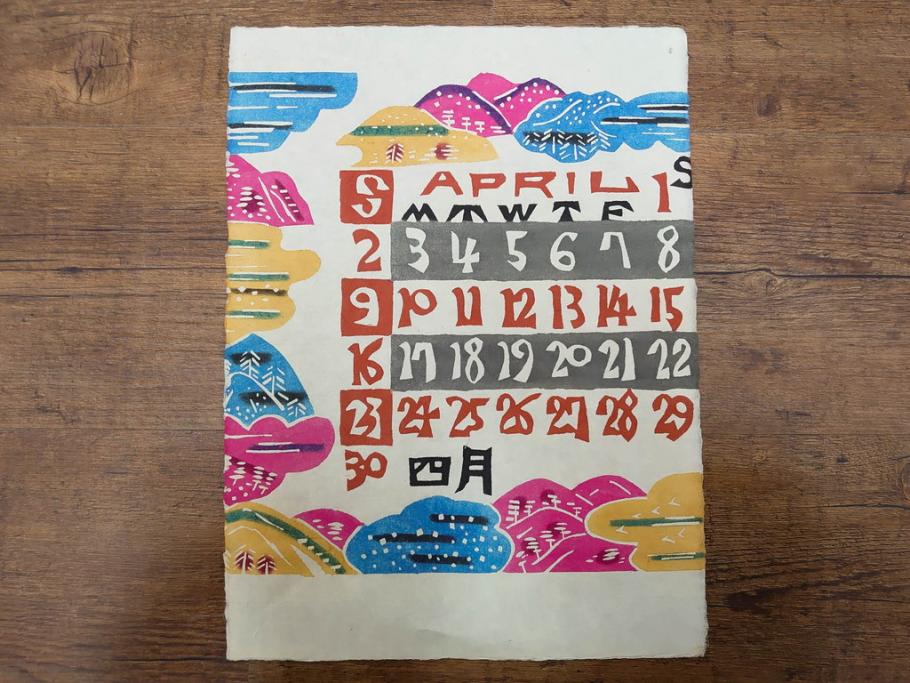 APRIL
S M T W T F S
1
2 3 4 5 6 7 8
9 10 11 12 13 14 15
16 17 18 19 20 21 22
23 24 25 26 27 28 29
30 四月